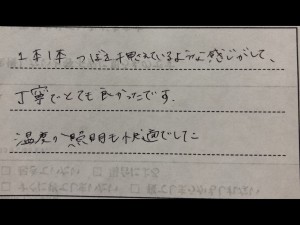 1本1本つぼを押さえているような感じがして、
丁寧でとても良かったです。
温度が照明も快適でした